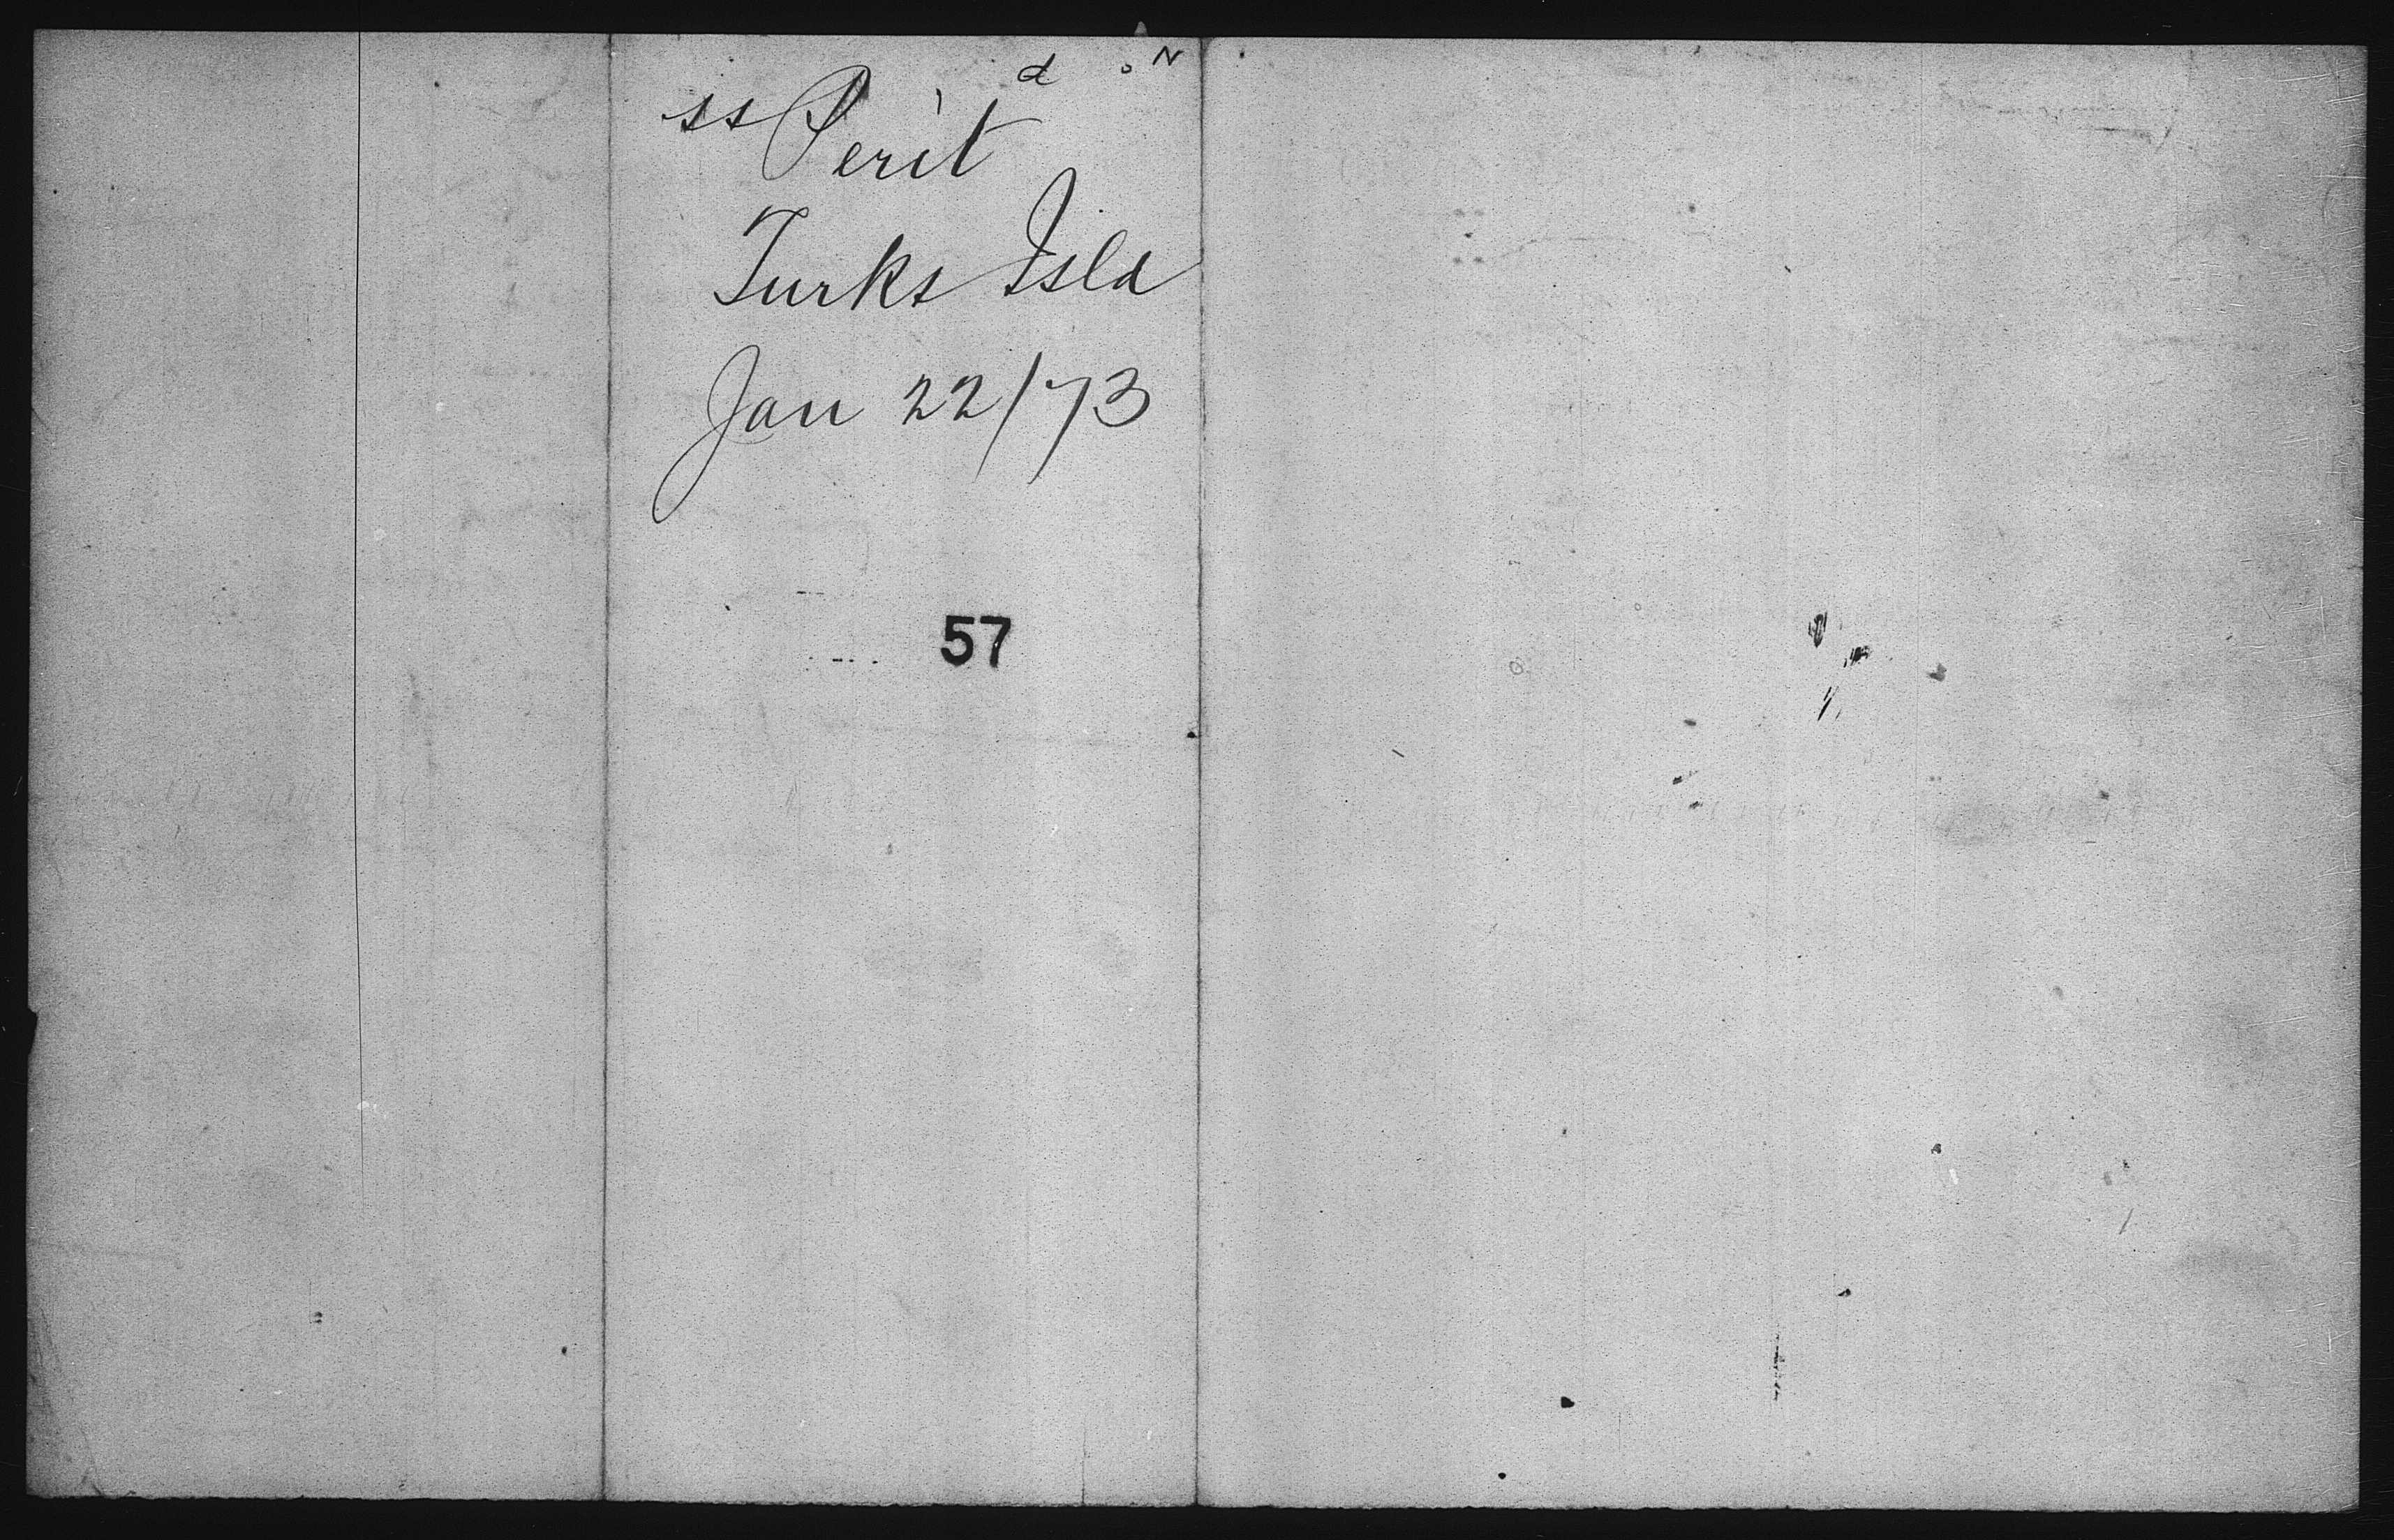 ss Perit
Turks Isla
Jan 22/73
57